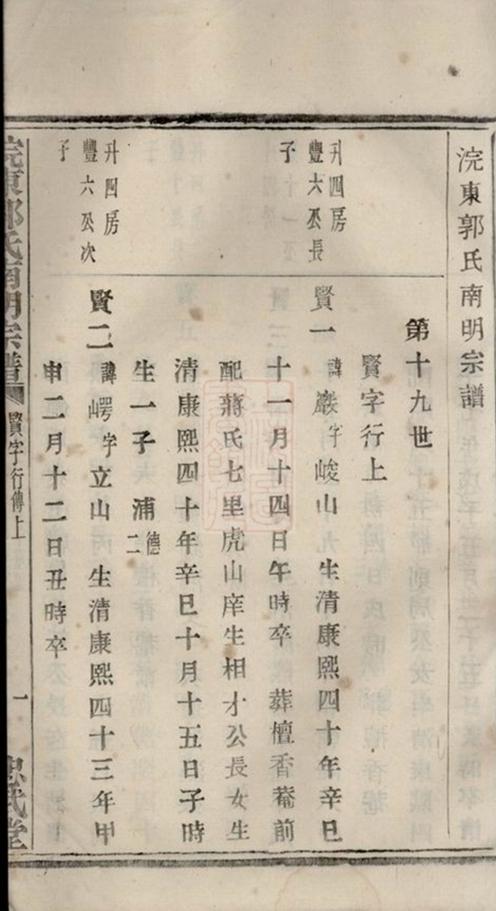 浣東郭氏南明宗譜
第十九世
賢字行上
升四房
豐六丞長
子
賢一 諱巖字峻山 生清康熙四十年辛巳
十一月十四日午時卒 葬檀香菴前
配蔣氏七里虎山庠生相才公長女生
清康熙四十年辛巳十月十五日子時
生一子 浦德二
升四房
豐六丞次
子
賢二 諱崿字立山 生清康熙四十三年甲
申二月十二日丑時卒
浣東郭氏南明宗譜
賢字行傳上
一
忠武堂